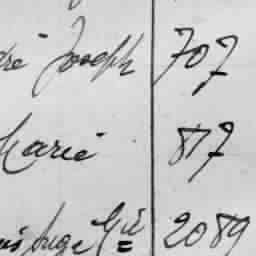 dré Joseph 707
Marie 817
Ange 2089